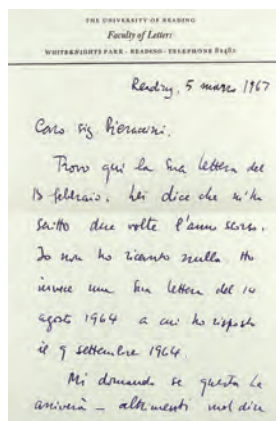 THE UNIVERSITY OF READING
Faculty of Letters
WHITEKNIGHTS PARK · READING · TELEPHONE 82481
Reading, 5 marzo 1967
Caro sig. Pieraccini,
Trovo qui la Sua lettera del
13 febbraio. Lei dice che m'ha
scritto due volte l'anno scorso.
Io non ho ricevuto nulla. Ho
invece una Sua lettera del 14
agosto 1964 a cui ho risposto
il 9 settembre 1964.
Mi domando se questa Le
arriverà – altrimenti vuol dire